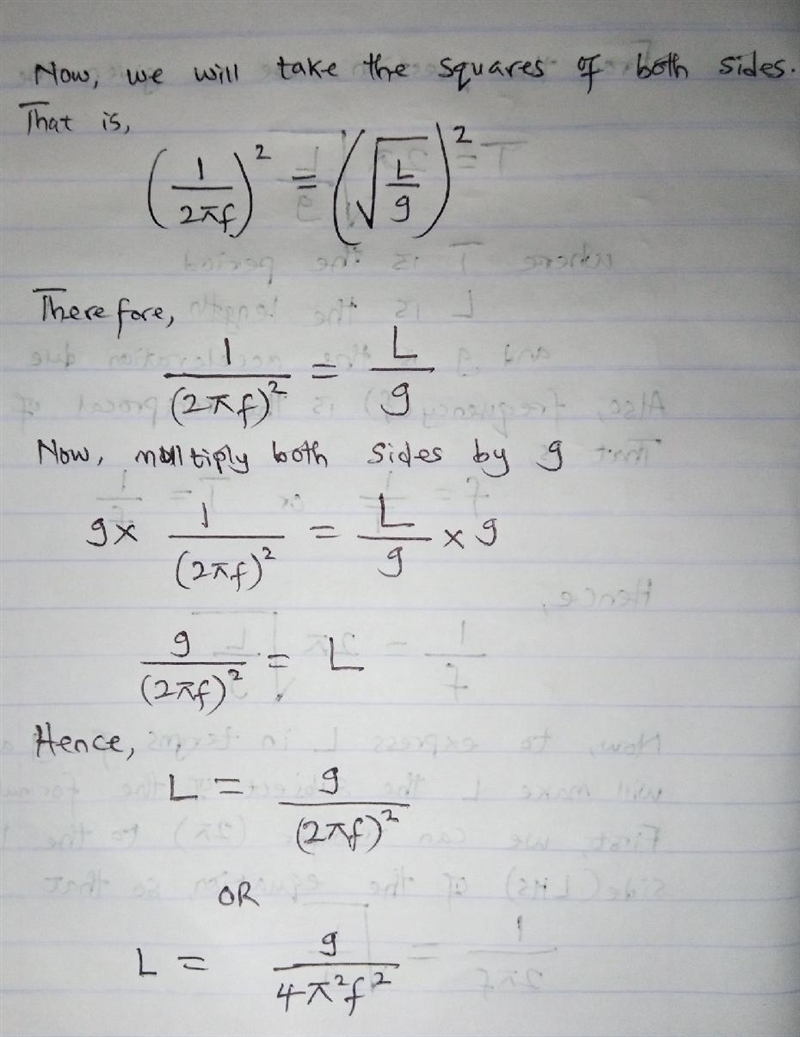 Now, we will take the squares of both sides.
That is,
(1/2πf)² = (√(L/g))²
Therefore,
1/(2πf)² = L/g
Now, multiply both sides by g
g × 1/(2πf)² = L/g × g
g/(2πf)² = L
Hence,
L = g/(2πf)²
OR
L = g/4π²f²